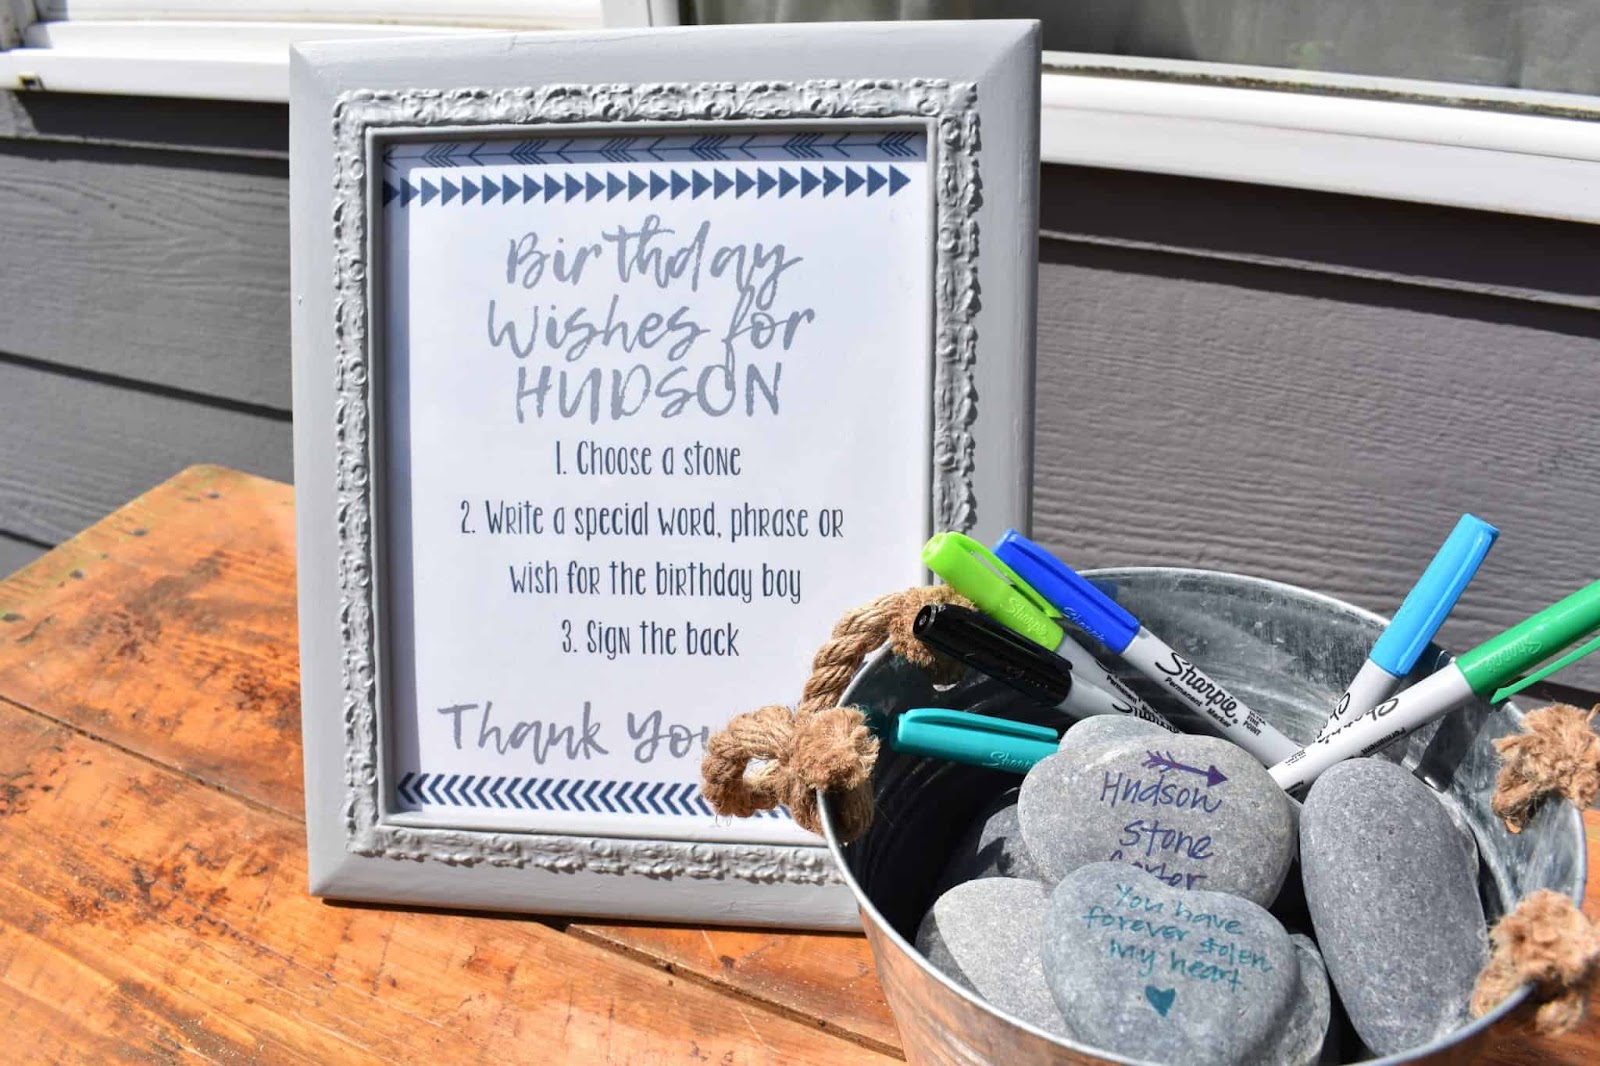 Birthday
Wishes for
HUDSON
1. Choose a stone
2. Write a special word, phrase or
wish for the birthday boy
3. Sign the back
Thank You
Sharpie
Sharpie
Permanent Marker
Hudson
stone
You have
forever stolen
my heart.